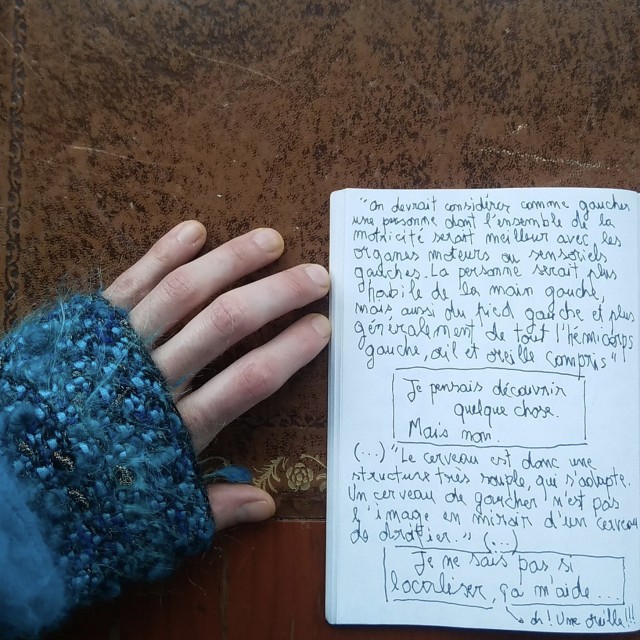 "On devrait considérer comme gaucher
une personne dont l'ensemble de la
motricité serait meilleur avec les
organes moteurs ou sensoriels
gauches. La personne serait plus
habile de la main gauche,
mais aussi du pied gauche et plus
généralement de tout l'hémicorps
gauche, œil et oreille compris"
Je pensais découvrir
quelque chose.
Mais non.
(...) "Le cerveau est donc une
structure très souple, qui s'adapte.
Un cerveau de gaucher n'est pas
l'image en miroir d'un cerveau
de droitier." (...)
Je ne sais pas si
localiser, ça m'aide...
oh! Une oreille!!!